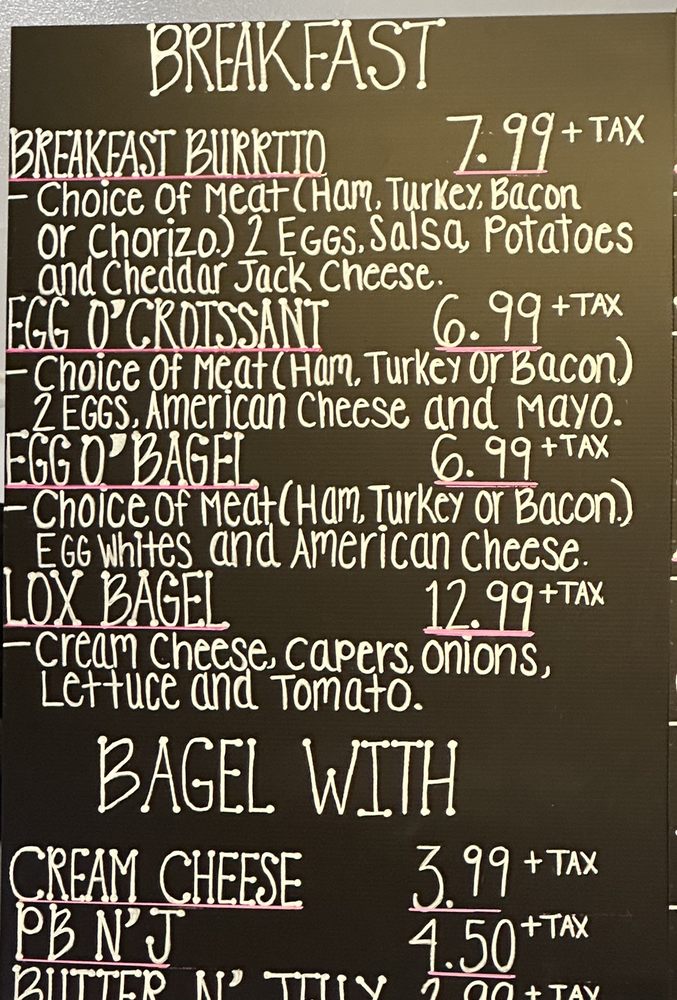 BREAKFAST
BREAKFAST BURRITO 7.99 + TAX
- Choice of Meat (Ham, Turkey, Bacon
or Chorizo.) 2 EGGS, Salsa, Potatoes
and Cheddar Jack Cheese.
EGG O'CROISSANT 6.99 + TAX
- Choice of Meat (Ham, Turkey or Bacon.)
2 EGGS, American Cheese and Mayo.
EGG O'BAGEL 6.99 + TAX
- Choice of Meat (Ham, Turkey or Bacon.)
EGG Whites and American Cheese.
LOX BAGEL 12.99 + TAX
- Cream Cheese, Capers, Onions,
Lettuce and Tomato.
BAGEL WITH
CREAM CHEESE 3.99 + TAX
PB N'J 4.50 + TAX
BUTTER N' JELLY 2.99 + TAX